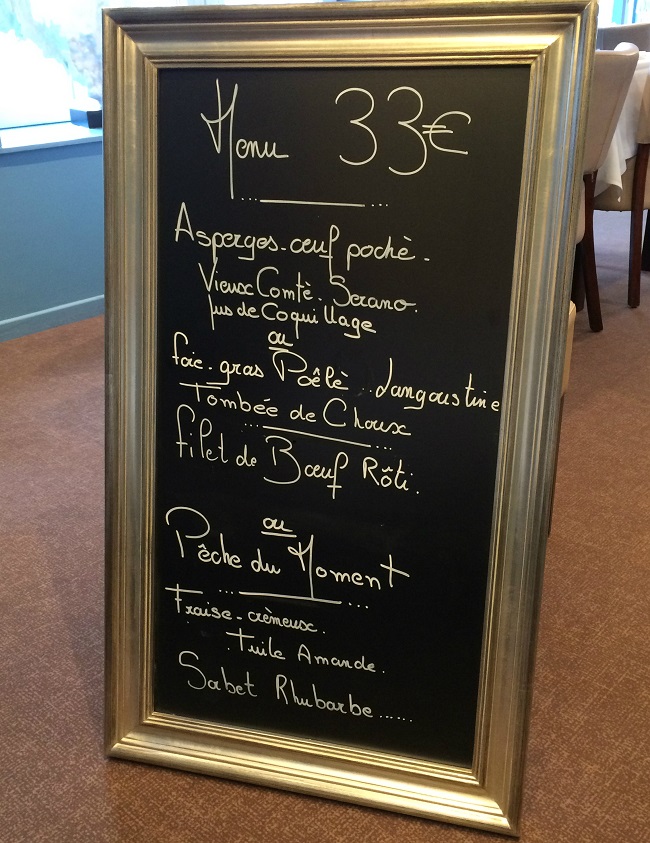 Menu 33€
Asperges - œuf pochè.
Vieux Comtè. Serano.
Jus de Coquillage
ou
foie-gras Poêlè.. Langoustine
Tombée de Choux
filet de Bœuf Rôti.
ou
Pêche du Moment
Fraise - crèmeux.
Tuile Amande.
Sorbet Rhubarbe......